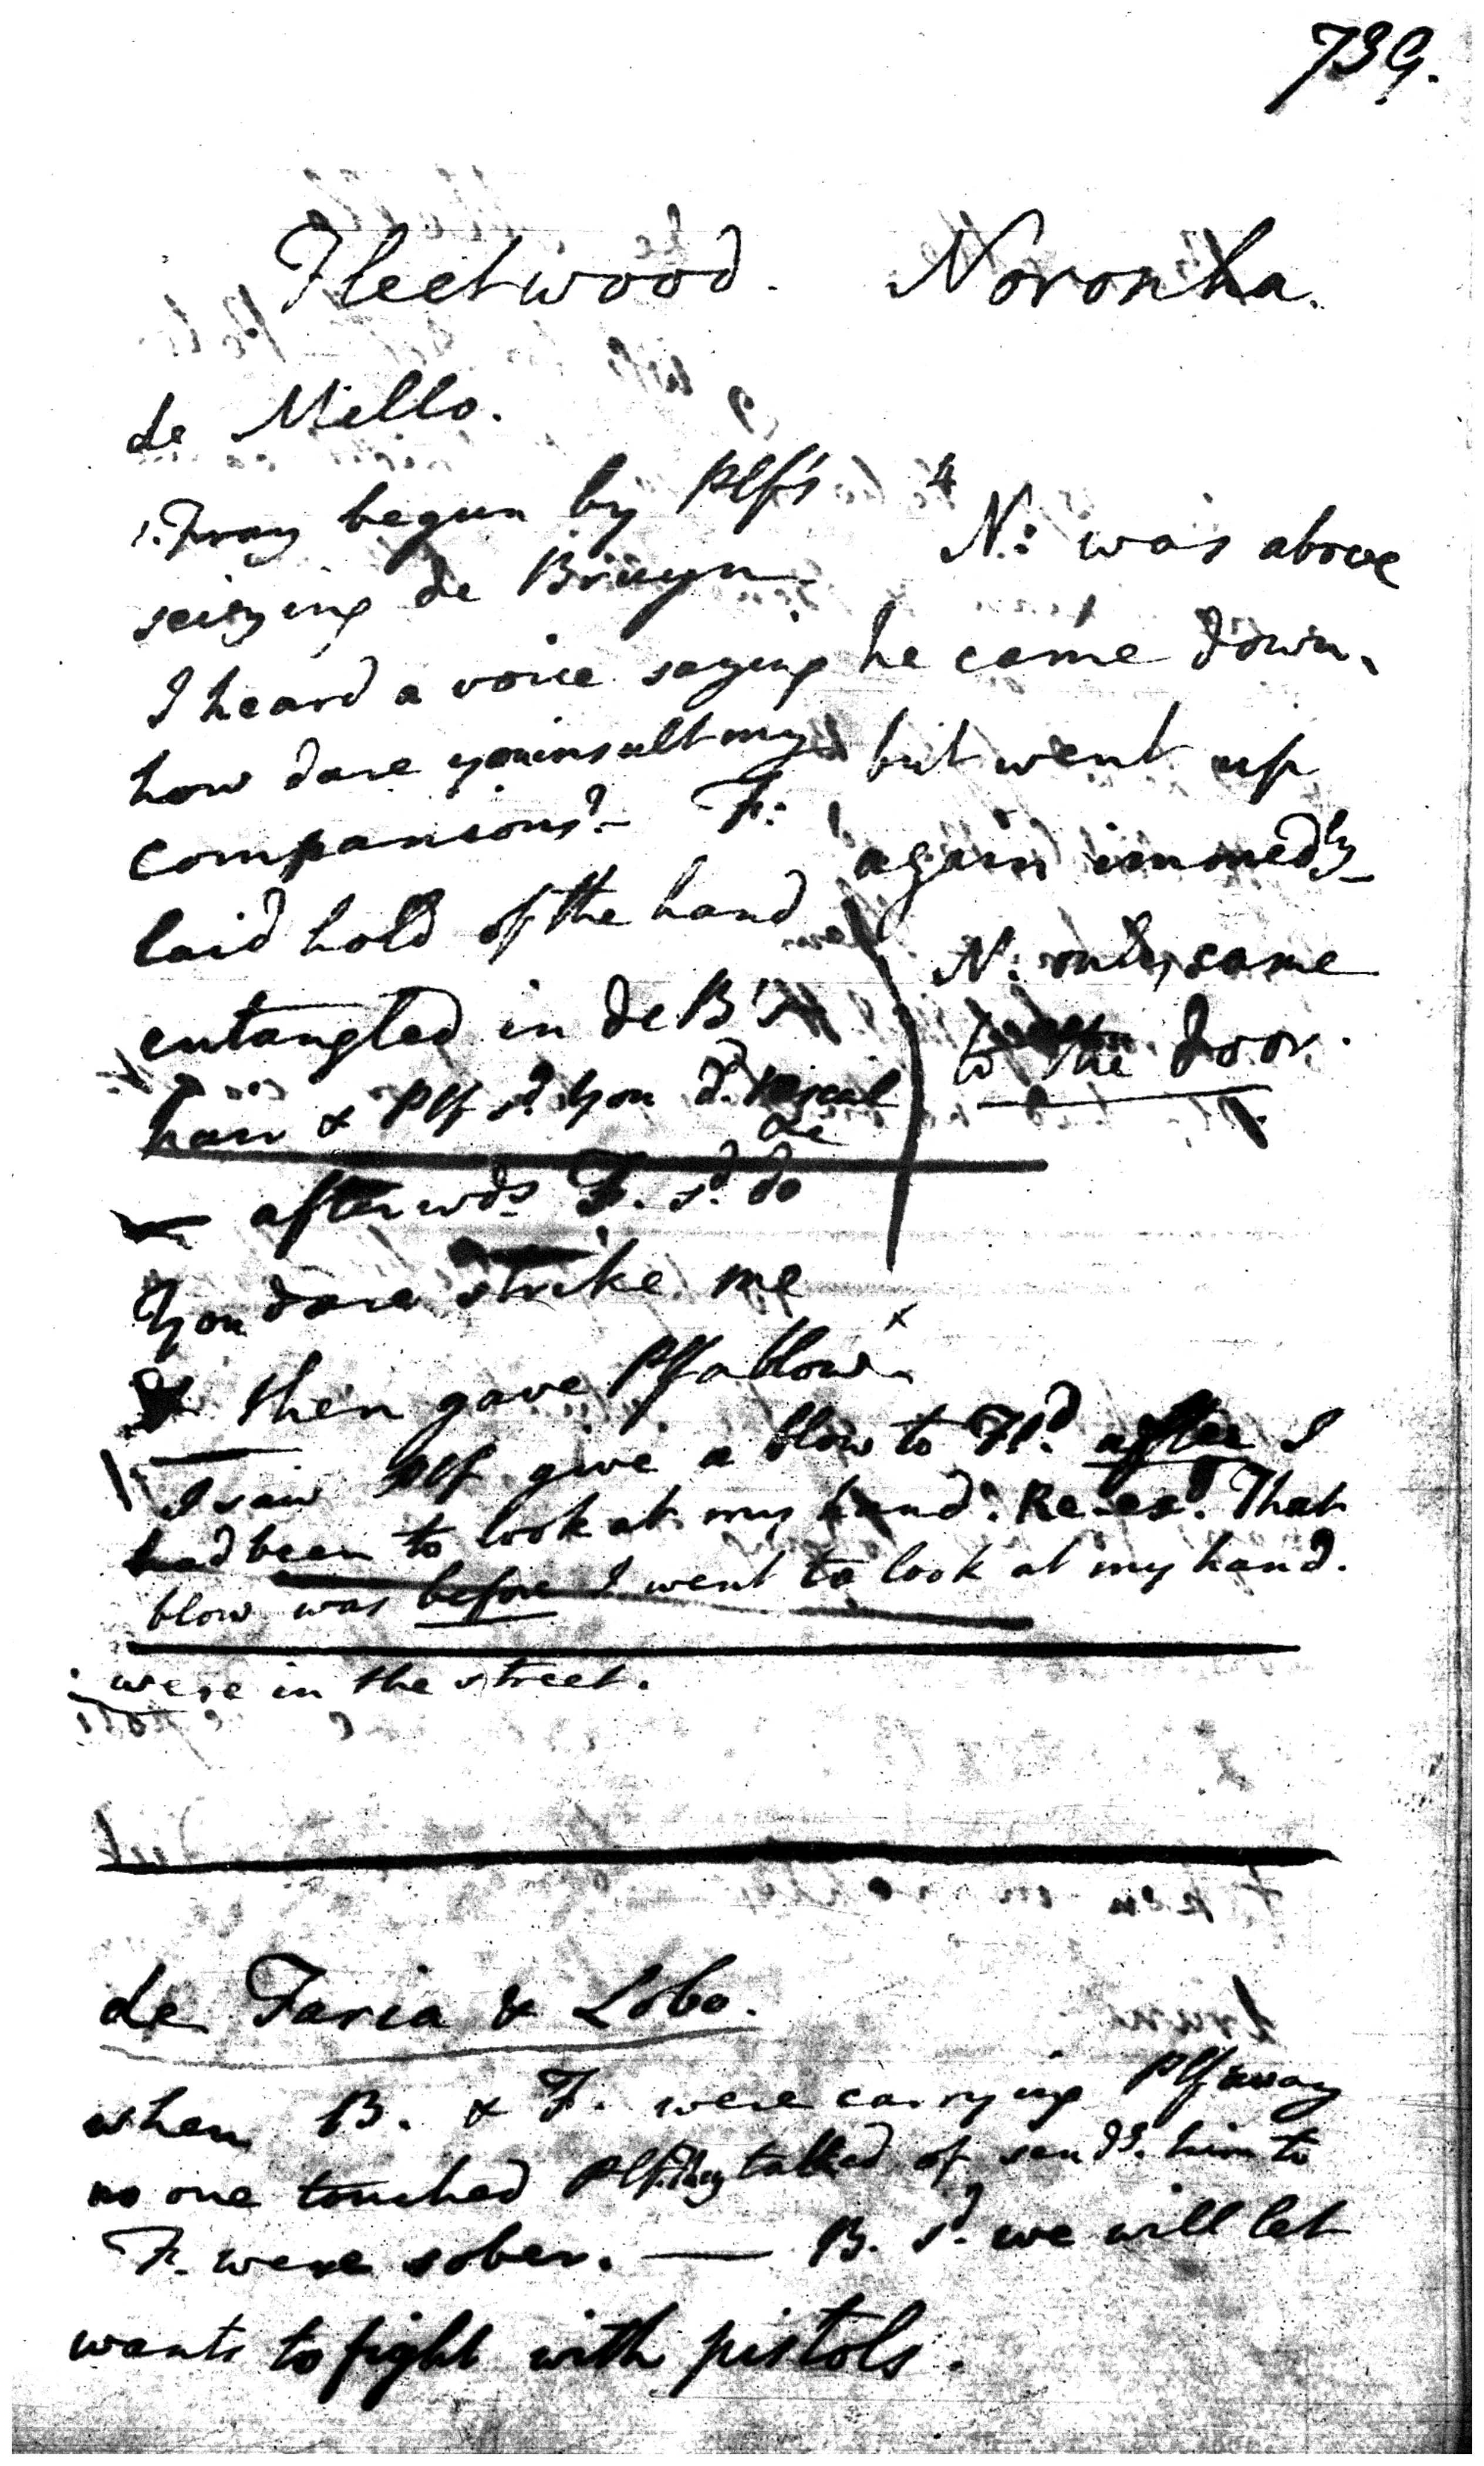 739.
Fleetwood. Noronha.
de Mello.
1. Fray begun by Plf's
seizing de Bruyn.
I heard a voice saying
how dare you insult my
companions? – F:
laid hold of the hand
entangled in de B's
hair & Plf sd. You d.
afterwds F. sd. do
You dare strike me
& then gave Plf a blow x
4
N: was above
he came down,
but went up
again immedly
N: only came
to the door.
I saw Plf give a blow to Fd. after I
had been to look at my hand. Re-exd. That
blow was before I went to look at my hand.
were in the street.
de Faria & Lobo.
when B. & F. were carrying Plf away
no one touched Plf. they talked of sendg. him to
F. were sober. — B. sd. we will let
wants to fight with pistols.